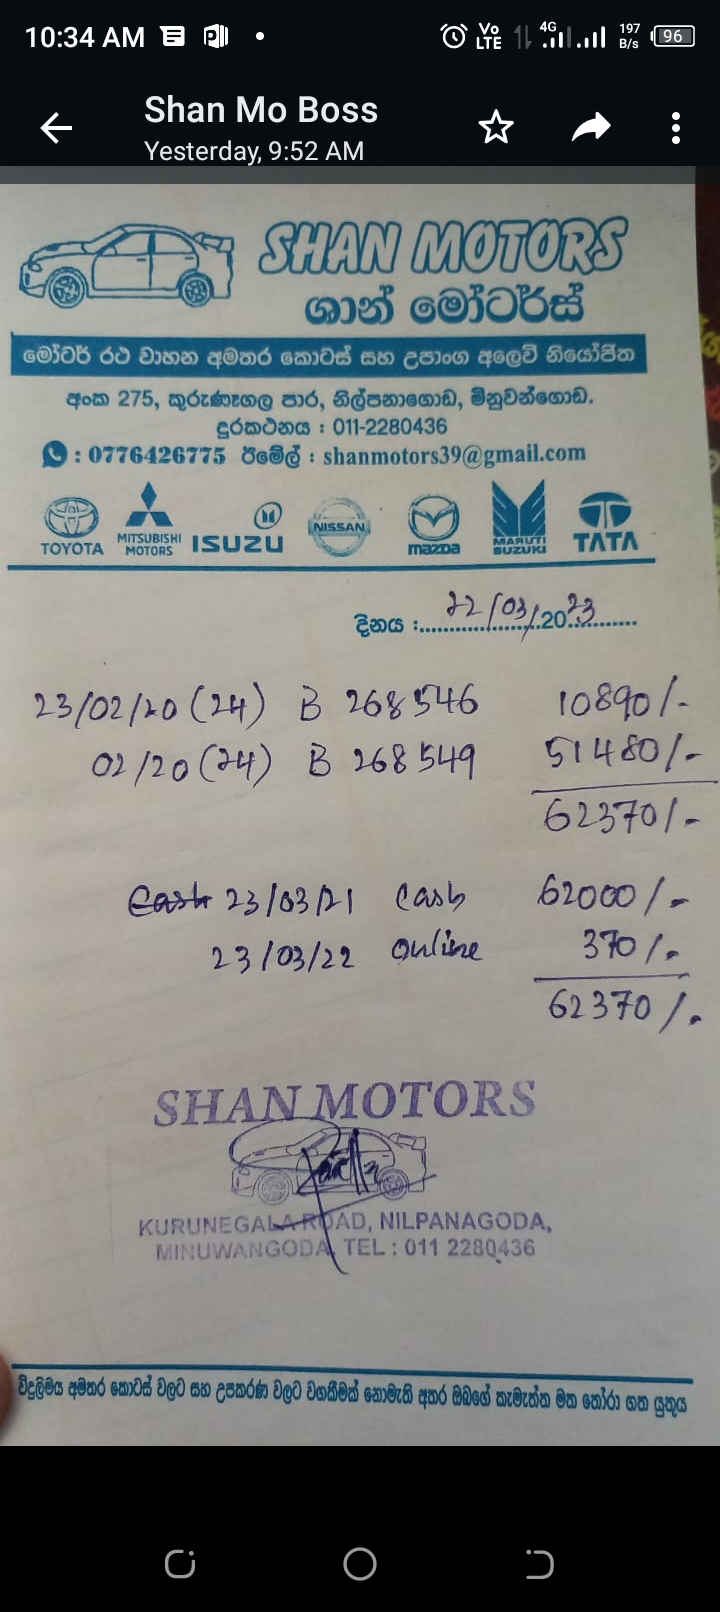 10:34 AM
Vo LTE 4G 197 B/s 96
Shan Mo Boss
Yesterday, 9:52 AM
SHAN MOTORS
ශාන් මෝටර්ස්
මෝටර් රථ වාහන අමතර කොටස් සහ උපාංග අලෙවි නියෝජිත
අංක 275, කුරුණෑගල පාර, නිල්පනාගොඩ, මිනුවන්ගොඩ.
දුරකථනය : 011-2280436
: 0776426775 ඊමේල් : shanmotors39@gmail.com
TOYOTA MITSUBISHI MOTORS ISUZU NISSAN mazda MARUTI SUZUKI TATA
දිනය : 22/03/2023
23/02/20 (24) B 268546 10890/-
02/20 (24) B 268549 51480/-
62370/-
Cash 23/03/21 Cash 62000/-
23/03/22 Online 370/-
62370/-
SHAN MOTORS
KURUNEGALA ROAD, NILPANAGODA,
MINUWANGODA, TEL : 011 2280436
විදුලිමය අමතර කොටස් වලට සහ උපකරණ වලට වගකීමක් නොමැති අතර ඔබගේ කැමැත්ත මත තෝරා ගත යුතුය